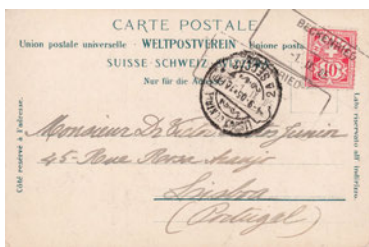 CARTE POSTALE
Union postale universelle · WELTPOSTVEREIN · Unione posta
SUISSE · SCHWEIZ
Nur für die A
BECKENRIED
10
2A SECÇÃO
Côté réservé à l'adresse.
Lato riservato all' indirizzo.
Monsieur Dr Junior
45-Rue Rosa Araujo
Lisboa
(Portugal)